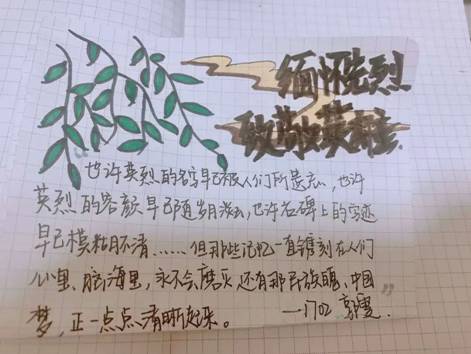 缅怀先烈
致敬英雄
“也许英烈的名字早已被人们所遗忘,也许
英烈的容颜早已随岁月淡去,也许石碑上的字迹
早已模糊不清……但那些记忆一直镌刻在人们
心里、脑海里,永不会磨灭还有那民族魂、中国
梦,正一点点清晰起来。”
——1702 郭